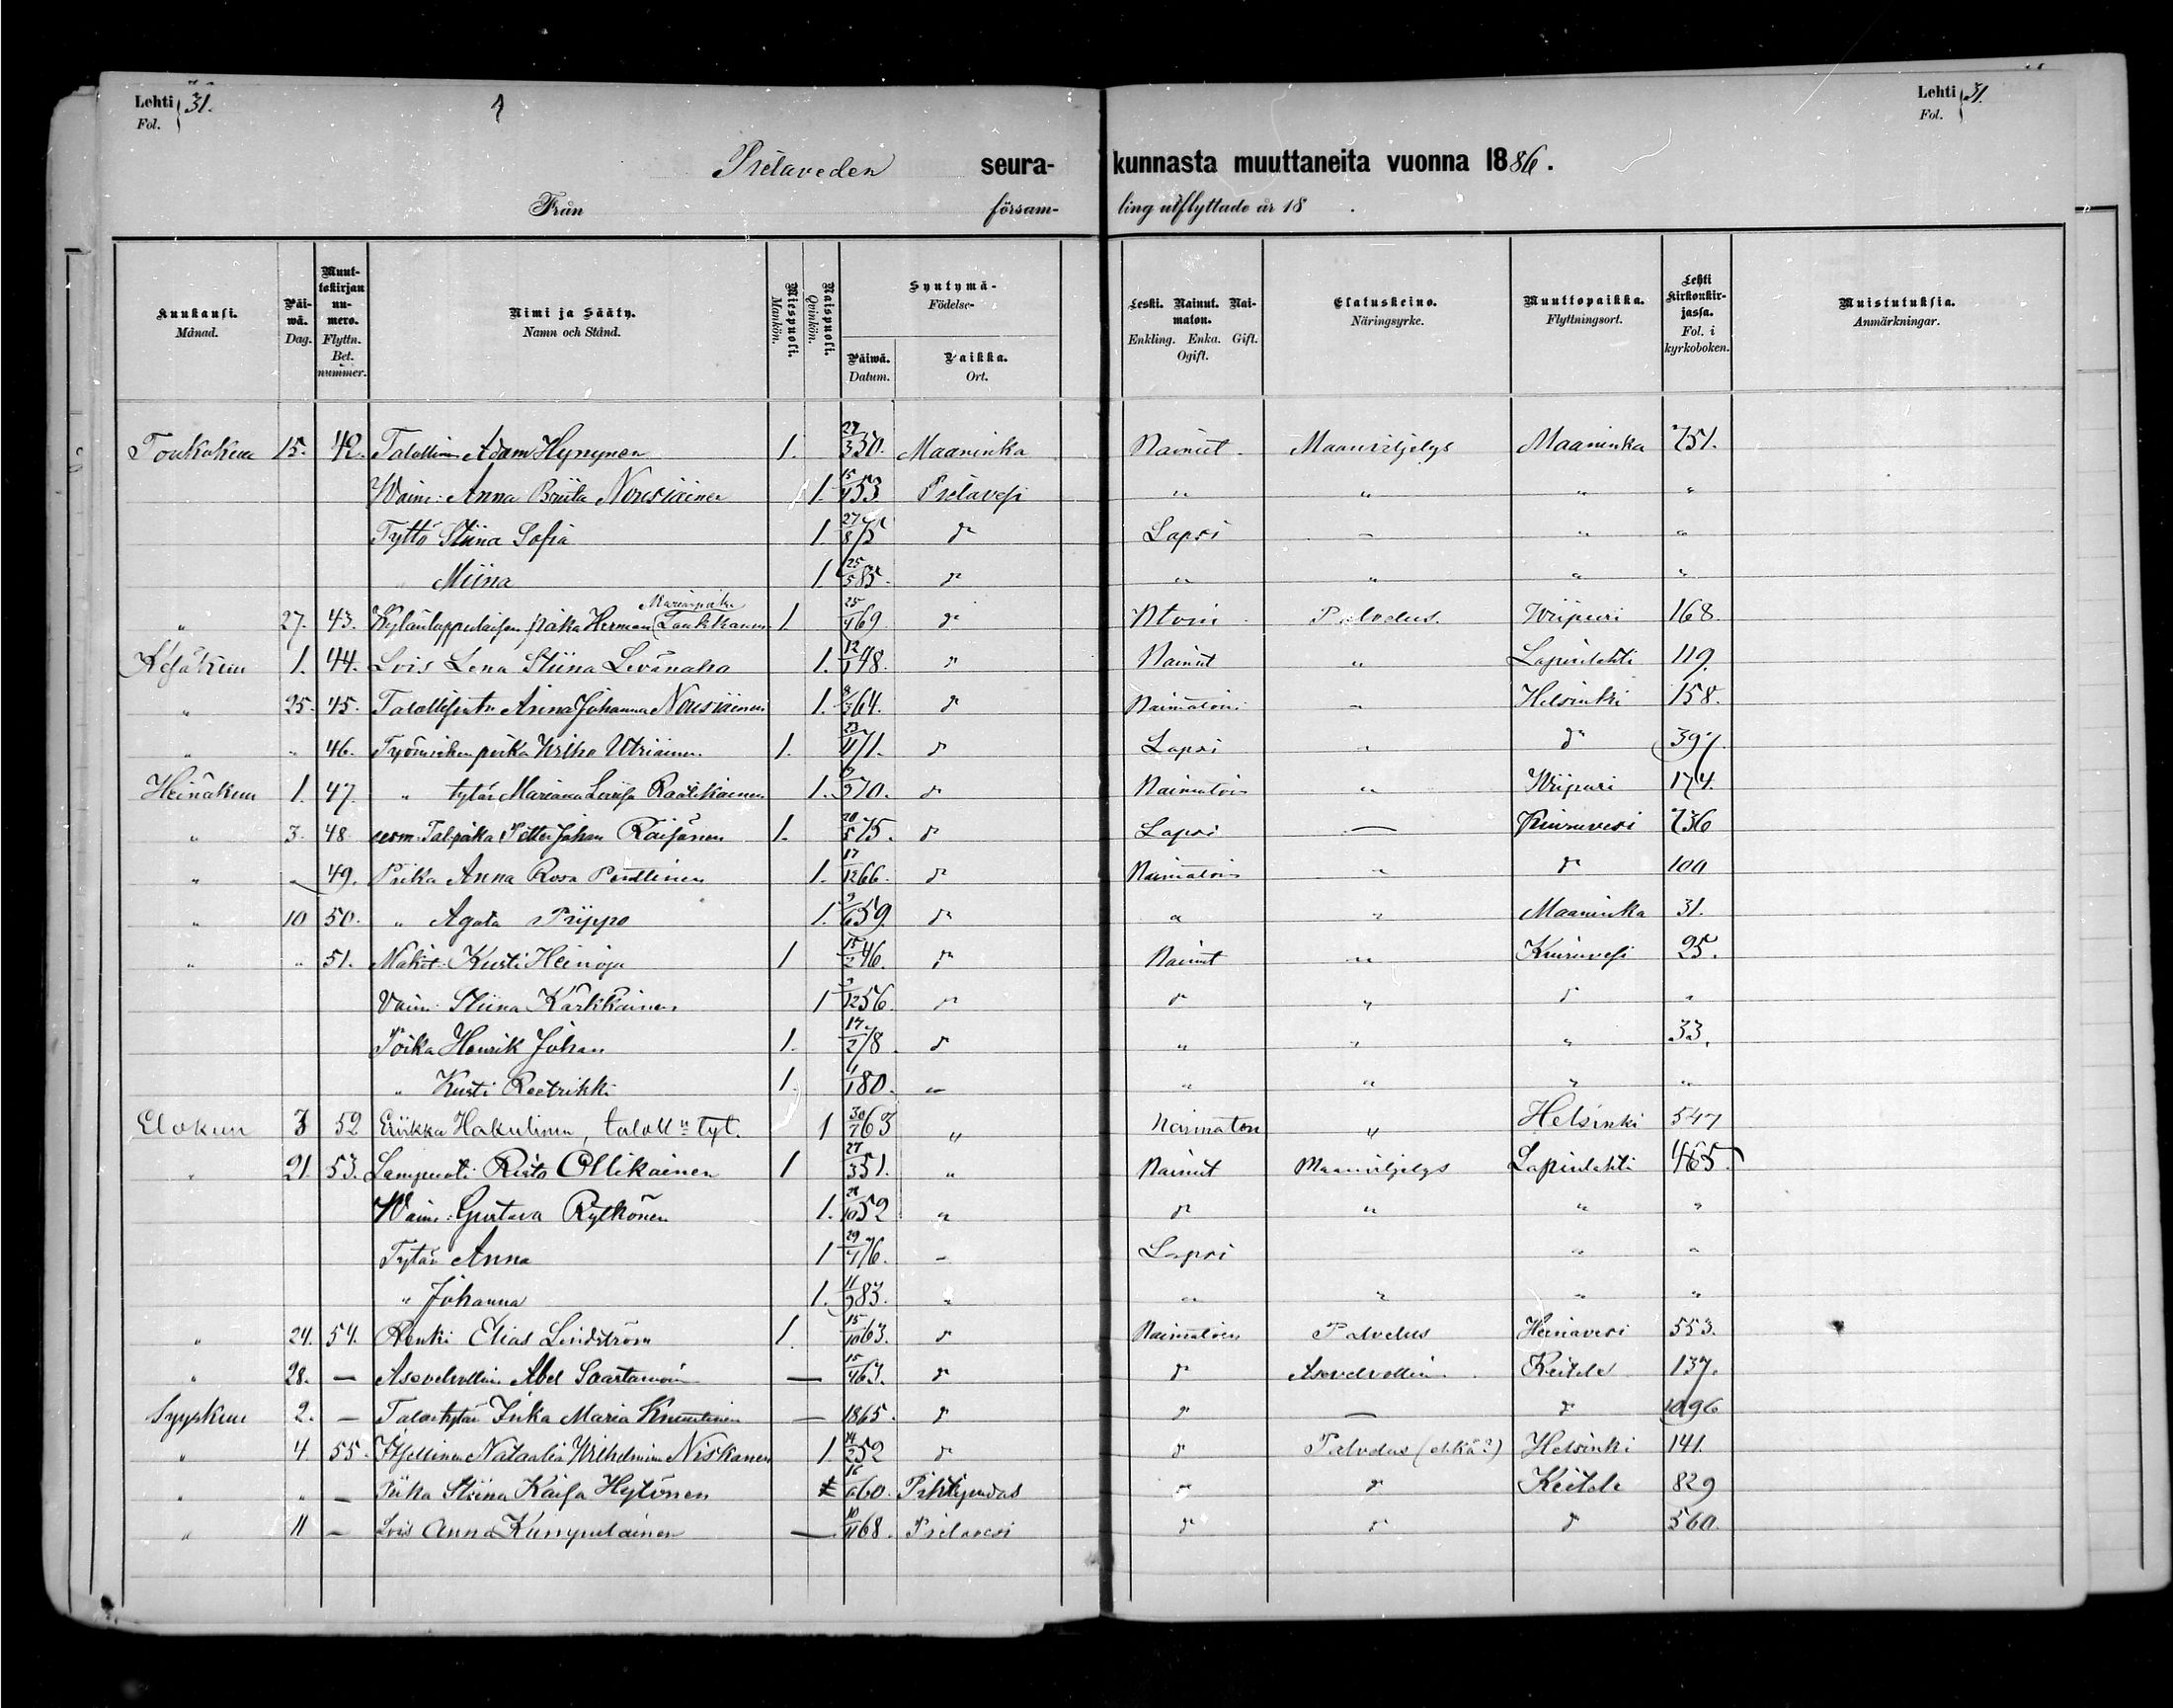 Lehti 31. Lehti 31.
Fol. Fol.
Pielaveden seura- kunnasta muuttaneita vuonna 1886.
Från försam- ling utflyttade år 18 .
Kuukausi. Månad. Päiwä. Dag. Muuttokirjan numero. Flyttn. Bet. nummer. Nimi ja Sääty. Namn och Stånd. Miespuoli. Mankön. Naispuoli. Qvinkön. Syntymä- Födelse- Päiwä. Datum. Paikka. Ort. Leski. Nainut. Naimaton. Enkling. Enka. Gift. Ogift. Elatuskeino. Näringsyrke. Muuttopaikka. Flyttningsort. Lehti kirkonkirjassa. Fol. i kyrkoboken. Muistutuksia. Anmärkningar.
Toukokuu 15. 42. Talollinen Adam Hynynen 1. 27/3 50. Maaninka Nainut Maanviljelys Maaninka 751.
Waim: Anna Briita Nousiainen 1. 15/4 53 Pielavesi " " " "
Tyttö Stiina Sofia 1. 27/8 75 do Lapsi " " "
" Miina 1 25/5 85. do " " " "
" 27. 43. poika Herman 1. 25/4 69 do Ntoin Palvelus Wiipuri 168.
Kesäkuu 1. 44. Lois Lena Stiina Levänaho 1. 12/1 48. do Nainut " Lapinlahti 119.
" 25. 45. Anna Johanna Nousiainen 1. 8/3 64. do Naimatoin " Helsinki 158.
" " 46. Työmiehen poika Utriainen 1. 23/11 71. do Lapsi " do 397.
Heinäkuu 1. 47. " tytär Mariana Loviisa Raatikainen 1. 70. do Naimatoin " Wiipuri 174.
" 3. 48. Petter Johan Räisänen 1. 20/5 75. do Lapsi — Kiuruvesi 736
" " 49. Piika Anna Rosa Penttinen 1. 17/12 66. do Naimatoin " do 100
" 10 50. " Agata Piippo 1. 9/6 59. do " " Maaninka 31.
" " 51. Mäkit. Kusti Heinoja 1 15/2 46. do Nainut " Kiuruvesi 25.
Vaim: Stiina Kärkkäinen 1 3/12 56. do do " do "
Poika Henrik Johan 1. 17/2 78. do " " " 33.
" Kusti Reetrikki 1. 1/1 80. " " " " "
Elokuu 3 52 Eriikka Hakulinen, taloll:n tyt. 1 30/7 63 " Naimaton " Helsinki 547
" 21. 53. Lampuoti Risto Ollikainen 1 27/3 51. " Nainut Maanviljelys Lapinlahti 465.
Waim: Gustava Rytkönen 1. 28/10 52 " do " " "
Tytär Anna 1 29/4 76. " Lapsi " "
" Johanna 1. 11/9 83. " " " " "
" 24. 54. Renki Elias Lindström 1. 15/10 63. do Naimatoin Palvelus Heinävesi 553.
" 28. — Asevelvollinen Abel Saastamoin — 15/4 63. do do Asevelvollinen Keitele 137.
Syyskuu 2. — Talon tytär Inka Maria Knuutinen — 1865. do do — do 1096
" 4 55. Itsellinen Nataalia Wilhelmiina Niskanen 1. 14/2 52 do do Palvelus (ehkä?) Helsinki 141.
" " — Piika Stiina Kaisa Hytönen 16/6 60. Pihtipudas " do Keitele 829
" 11 — Lois Anna Kumpulainen — 10/11 68. Pielavesi do do do 560.